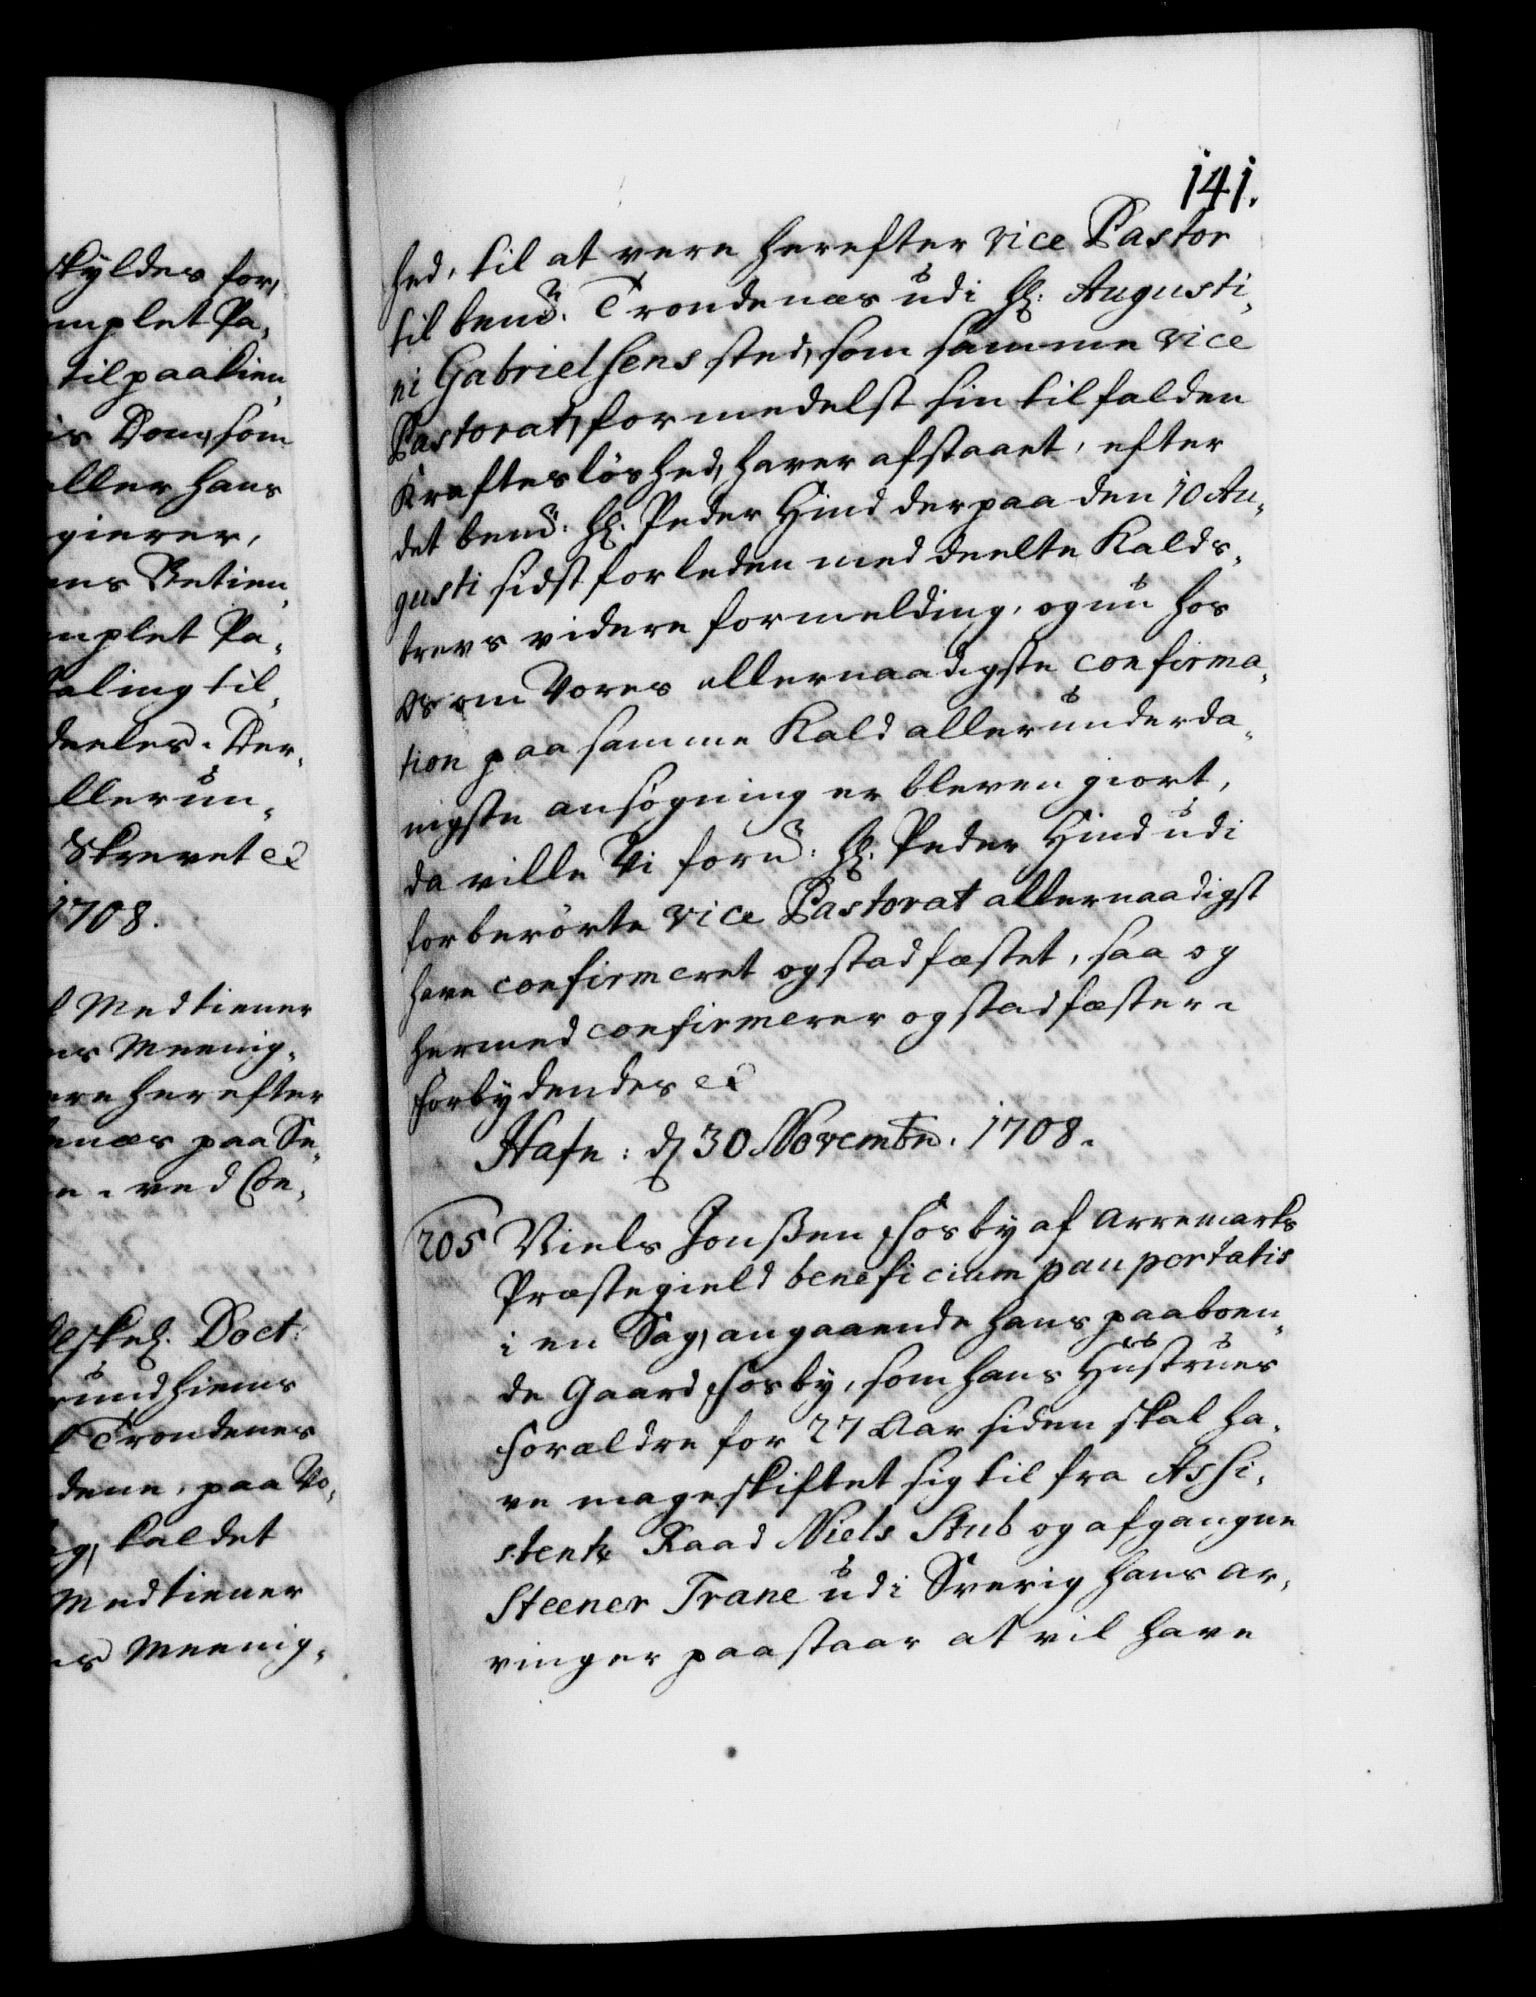 skyldes for,
mplet Pa-
til paakien-
is Dom, som
eller hans
gierer,
ens Betien-
mplet Pa-
taling til-
deeles. Der-
llerun-
Skrevet &c
1708.
Medtiener
ns Meenig-
ere herefter
enæs paa Se-
n. ved Con-
Doct:
rundhiems
Trondenes
dene, paa Vo-
g, kaldet
Medtiener
ns Meenig-
141.
hed, til at vere herefter vice Pastor
til bemt: Trondenæs udi Hr: Augusti-
ni Gabrielsens sted, som samme vice
Pastorat, formedelst sin tilfalden
Kraftesløshed, haver afstaaet, efter
det bemt: Hr: Peder Hind derpaa den 10 Au-
gusti sidstforleden meddeelte Kalds-
brevs videre formelding, og nu hos
os om Vores allernaadigste confirma-
tion paa samme Kald allerunderda-
nigste ansøgning er bleven giort,
da ville Vi fornt: Hr: Peder Hind udi
forberørte vice Pastorat allernaadigst
have confirmeret og stadfæstet, saa og
hermed confirmerer og stadfæster.
Forbydendes &c
Hafn: d 30 Novembr. 1708.
205 Niels Jonßen Fosby af Arremarks
Præstegield beneficium paupertatis
i en Sag, angaaende hans paaboen-
de Gaard Fosby, som hans Hustrues
Forældre for 27 Aar siden skal ha-
ve mageskiftet sig til fra Assi-
stentz Raad Niels Stub og afgangne
Steener Trane udi Sverig hans ar-
vinger paastaar at vil have